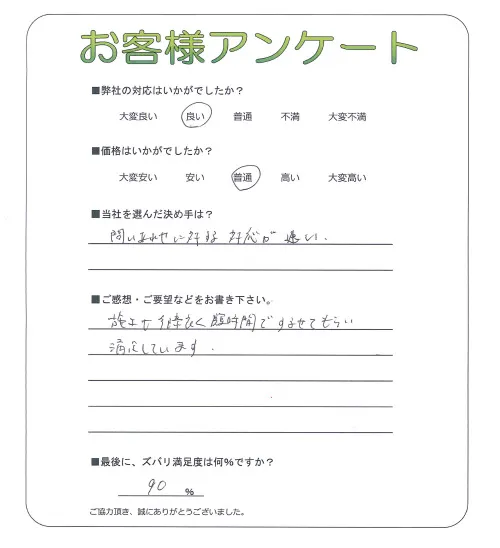 お客様アンケート
■弊社の対応はいかがでしたか？
大変良い 良い 普通 不満 大変不満
■価格はいかがでしたか？
大変安い 安い 普通 高い 大変高い
■当社を選んだ決め手は？
問い合わせに対する対応が速い.
■ご感想・ご要望などをお書き下さい。
施工も手際良く短時間ですませてもらい
満足しています.
■最後に、ズバリ満足度は何%ですか？
90 %
ご協力頂き、誠にありがとうございました。